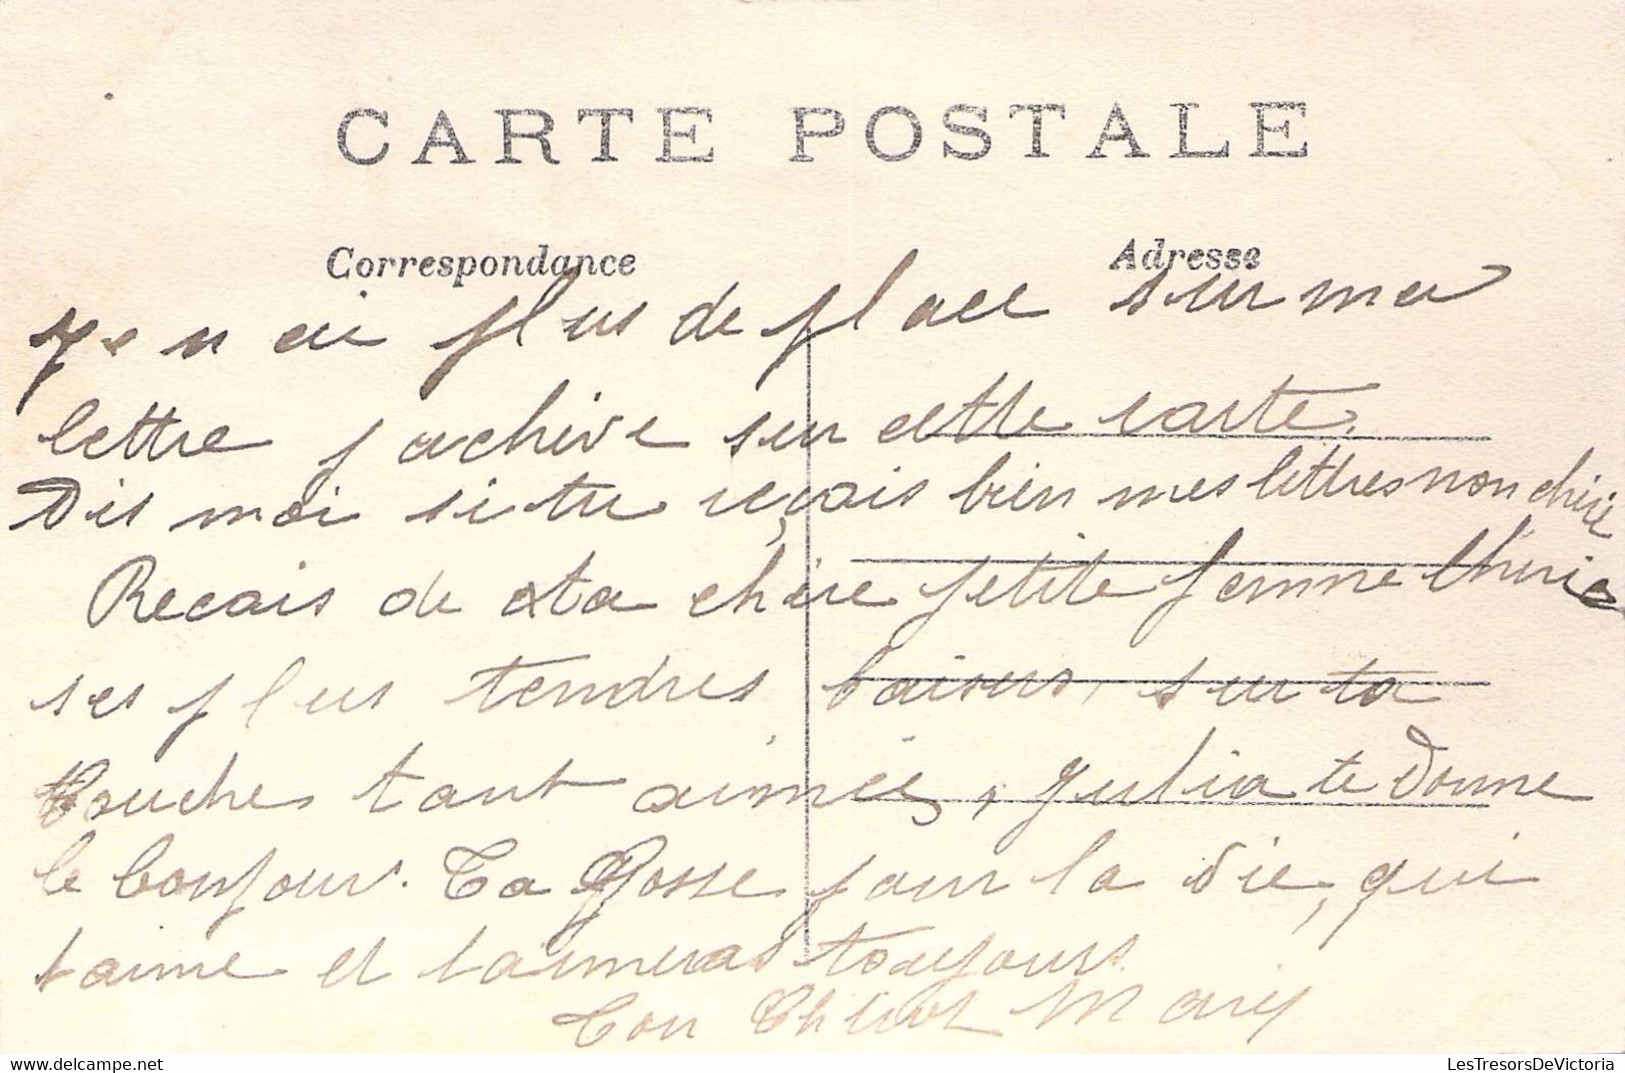 CARTE POSTALE
Correspondance
Adresse
Je n ai plus de place sur ma
lettre j achive sur cette carte.
Dis moi si tu reçais bien mes lettres non chiri
Recais de ta chère petite femme
ses plus tendres baisers, sur ta
bouche, tant aimée, Julia te donne
le bonjour. Ta Gosse pour la vie, qui
t aime et t aimeras toujours
Ton
LesTresorsDeVictoria